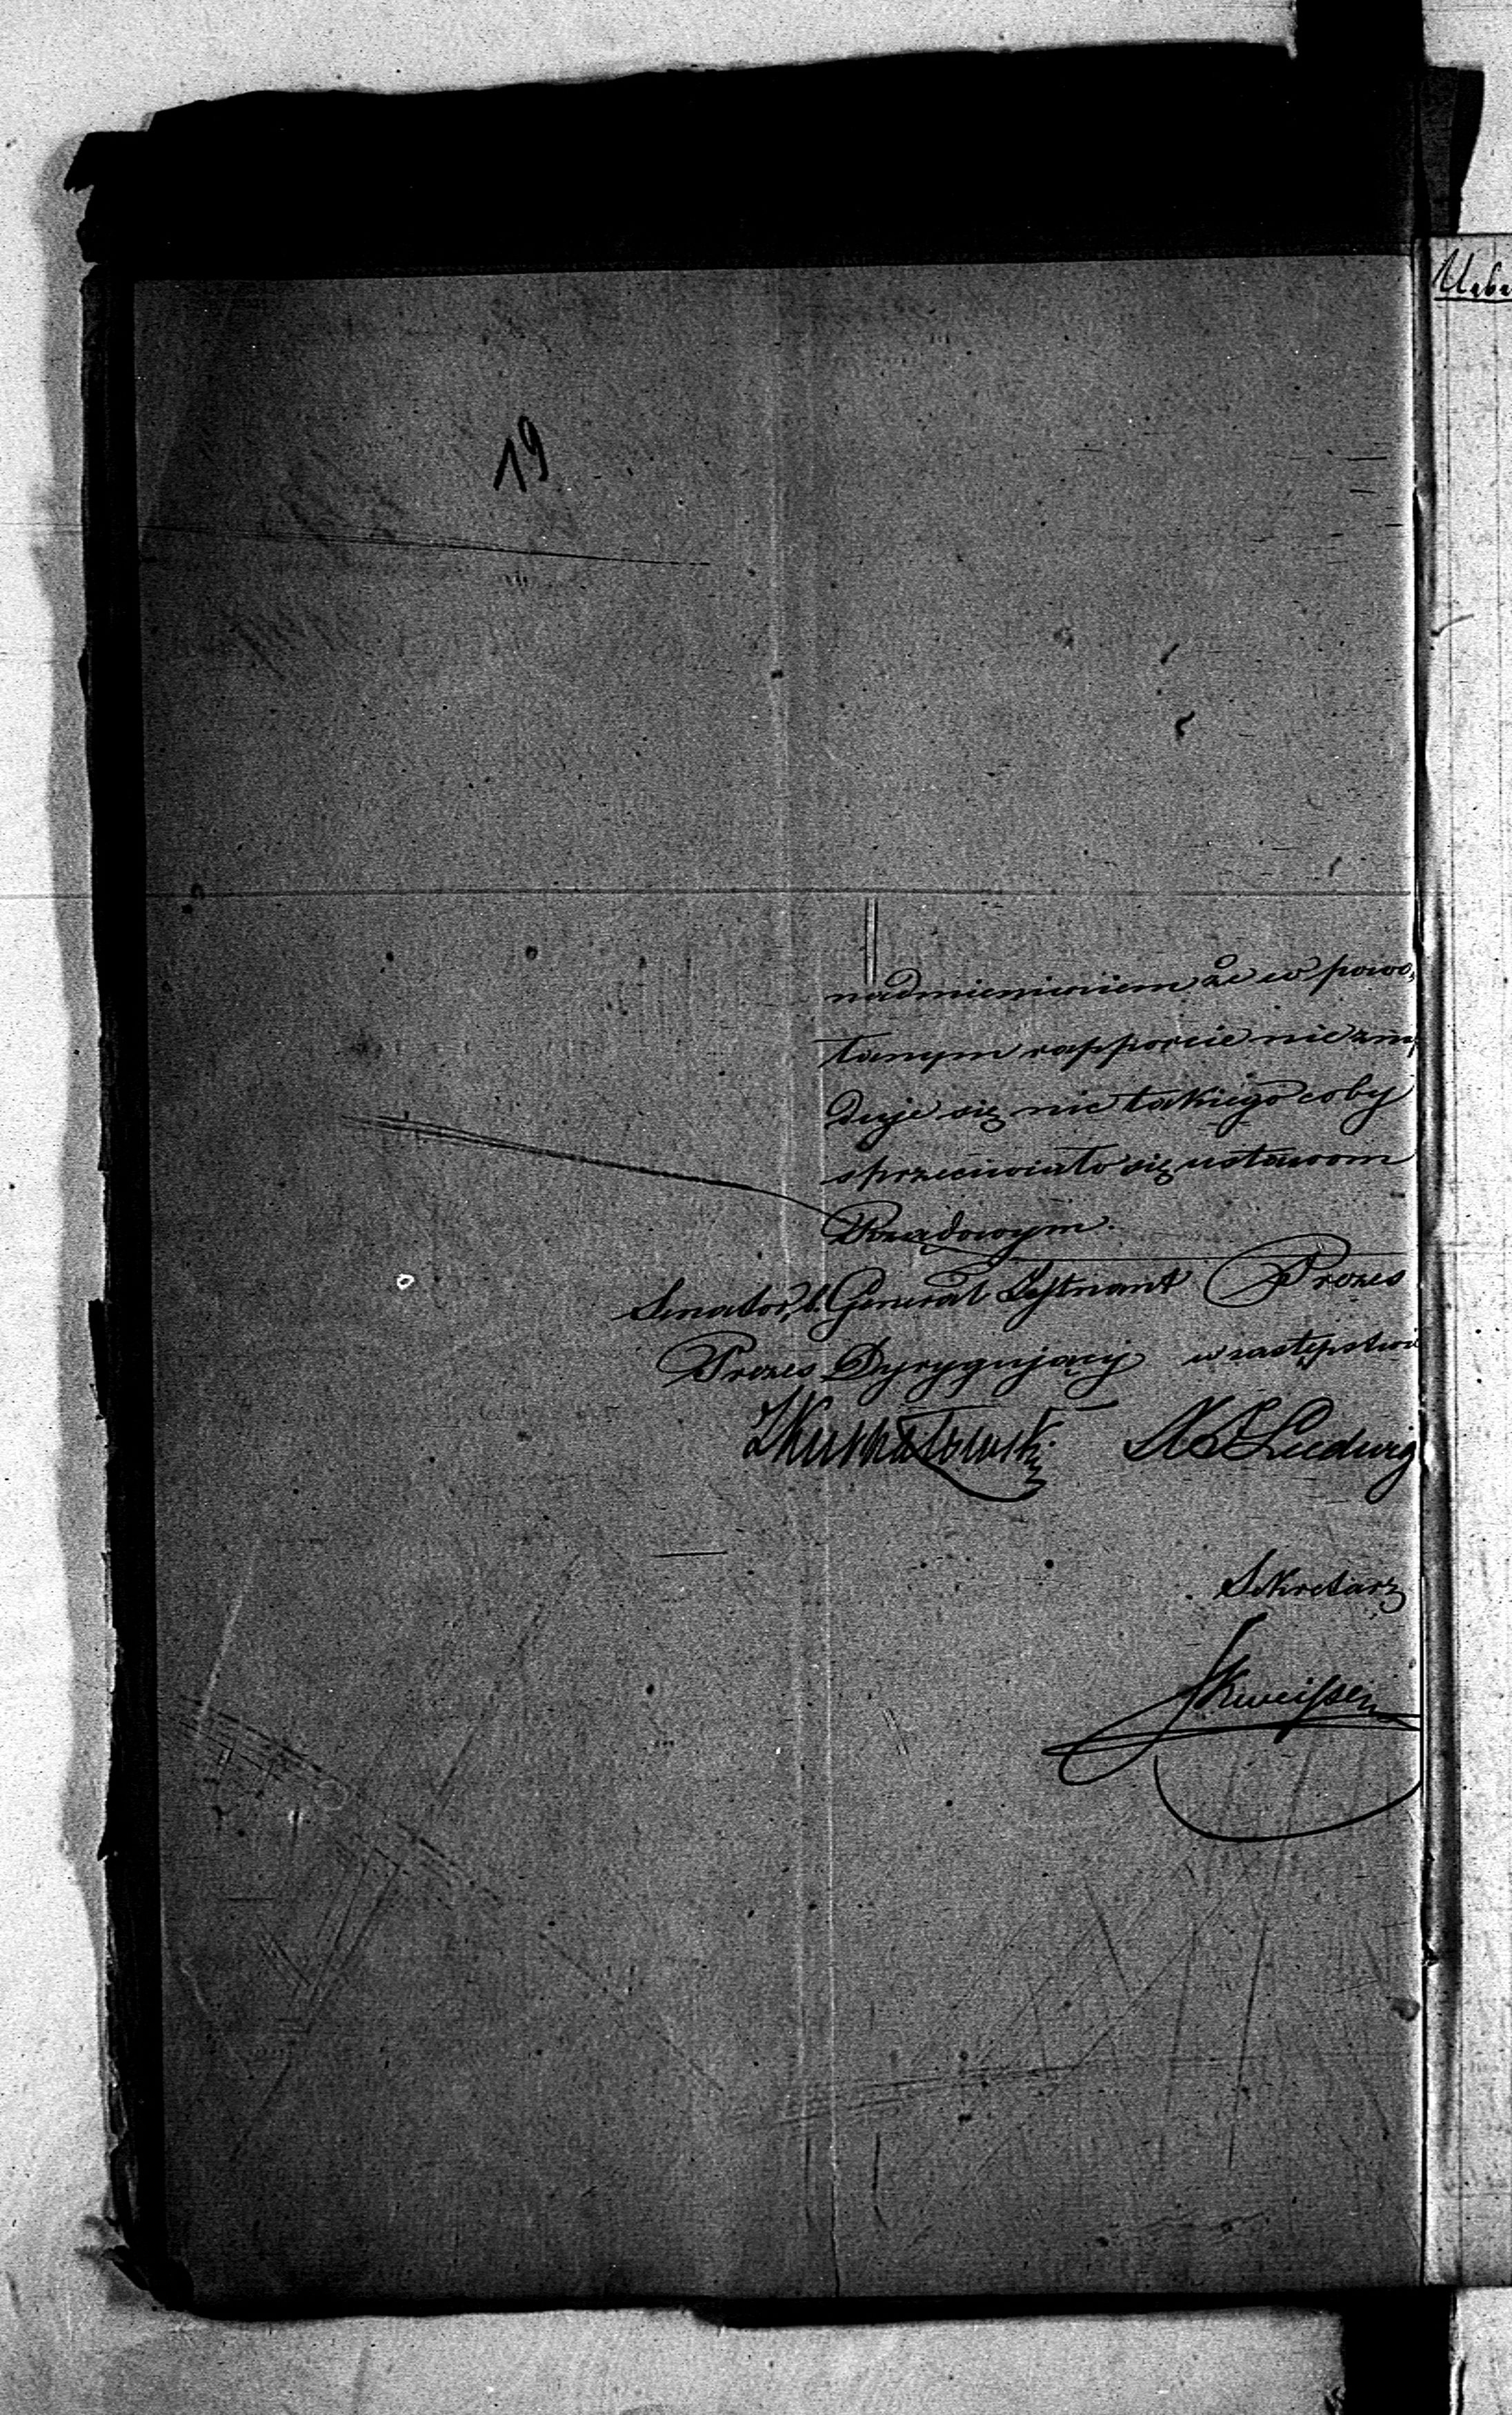 19
nadmienieniem że w powo,
łanym rapporcie nie zna,
duje się nic takiego coby
sprzeciwiało się ustawom
Rządowym.
Senator, b. Generał Lejtnant Prezes
Prezes Dyrygujący w zastępstwie
Ludwig
Sekretarz